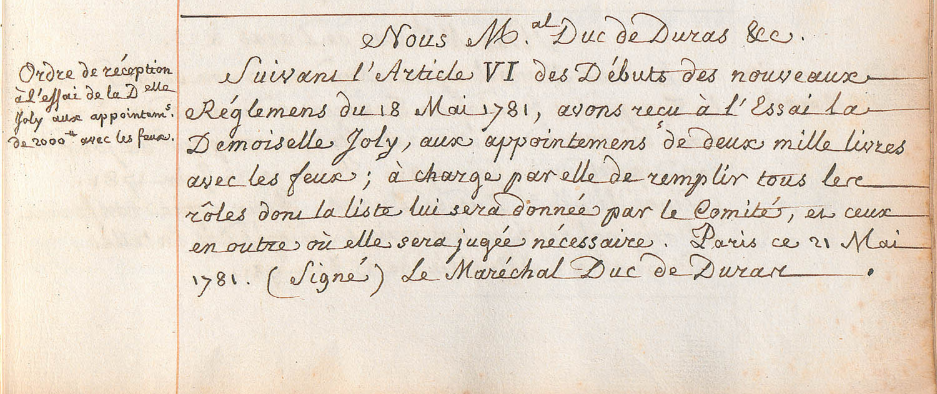 Nous M.al Duc de Duras &c.
Ordre de réception
à l'essai de la Delle
Joly aux appointem.s
de 2000tt avec les feux.
Suivant l'Article VI des Débuts des nouveaux
Réglemens du 18 Mai 1781, avons reçu à l'Essai la
Demoiselle Joly, aux appointemens de deux mille livres
avec les feux; à charge par elle de remplir tous les
rôles dont la liste lui sera donnée par le Comité, et ceux
en outre où elle sera jugée nécessaire. Paris ce 21 Mai
1781. (Signé) Le Maréchal Duc de Duras.